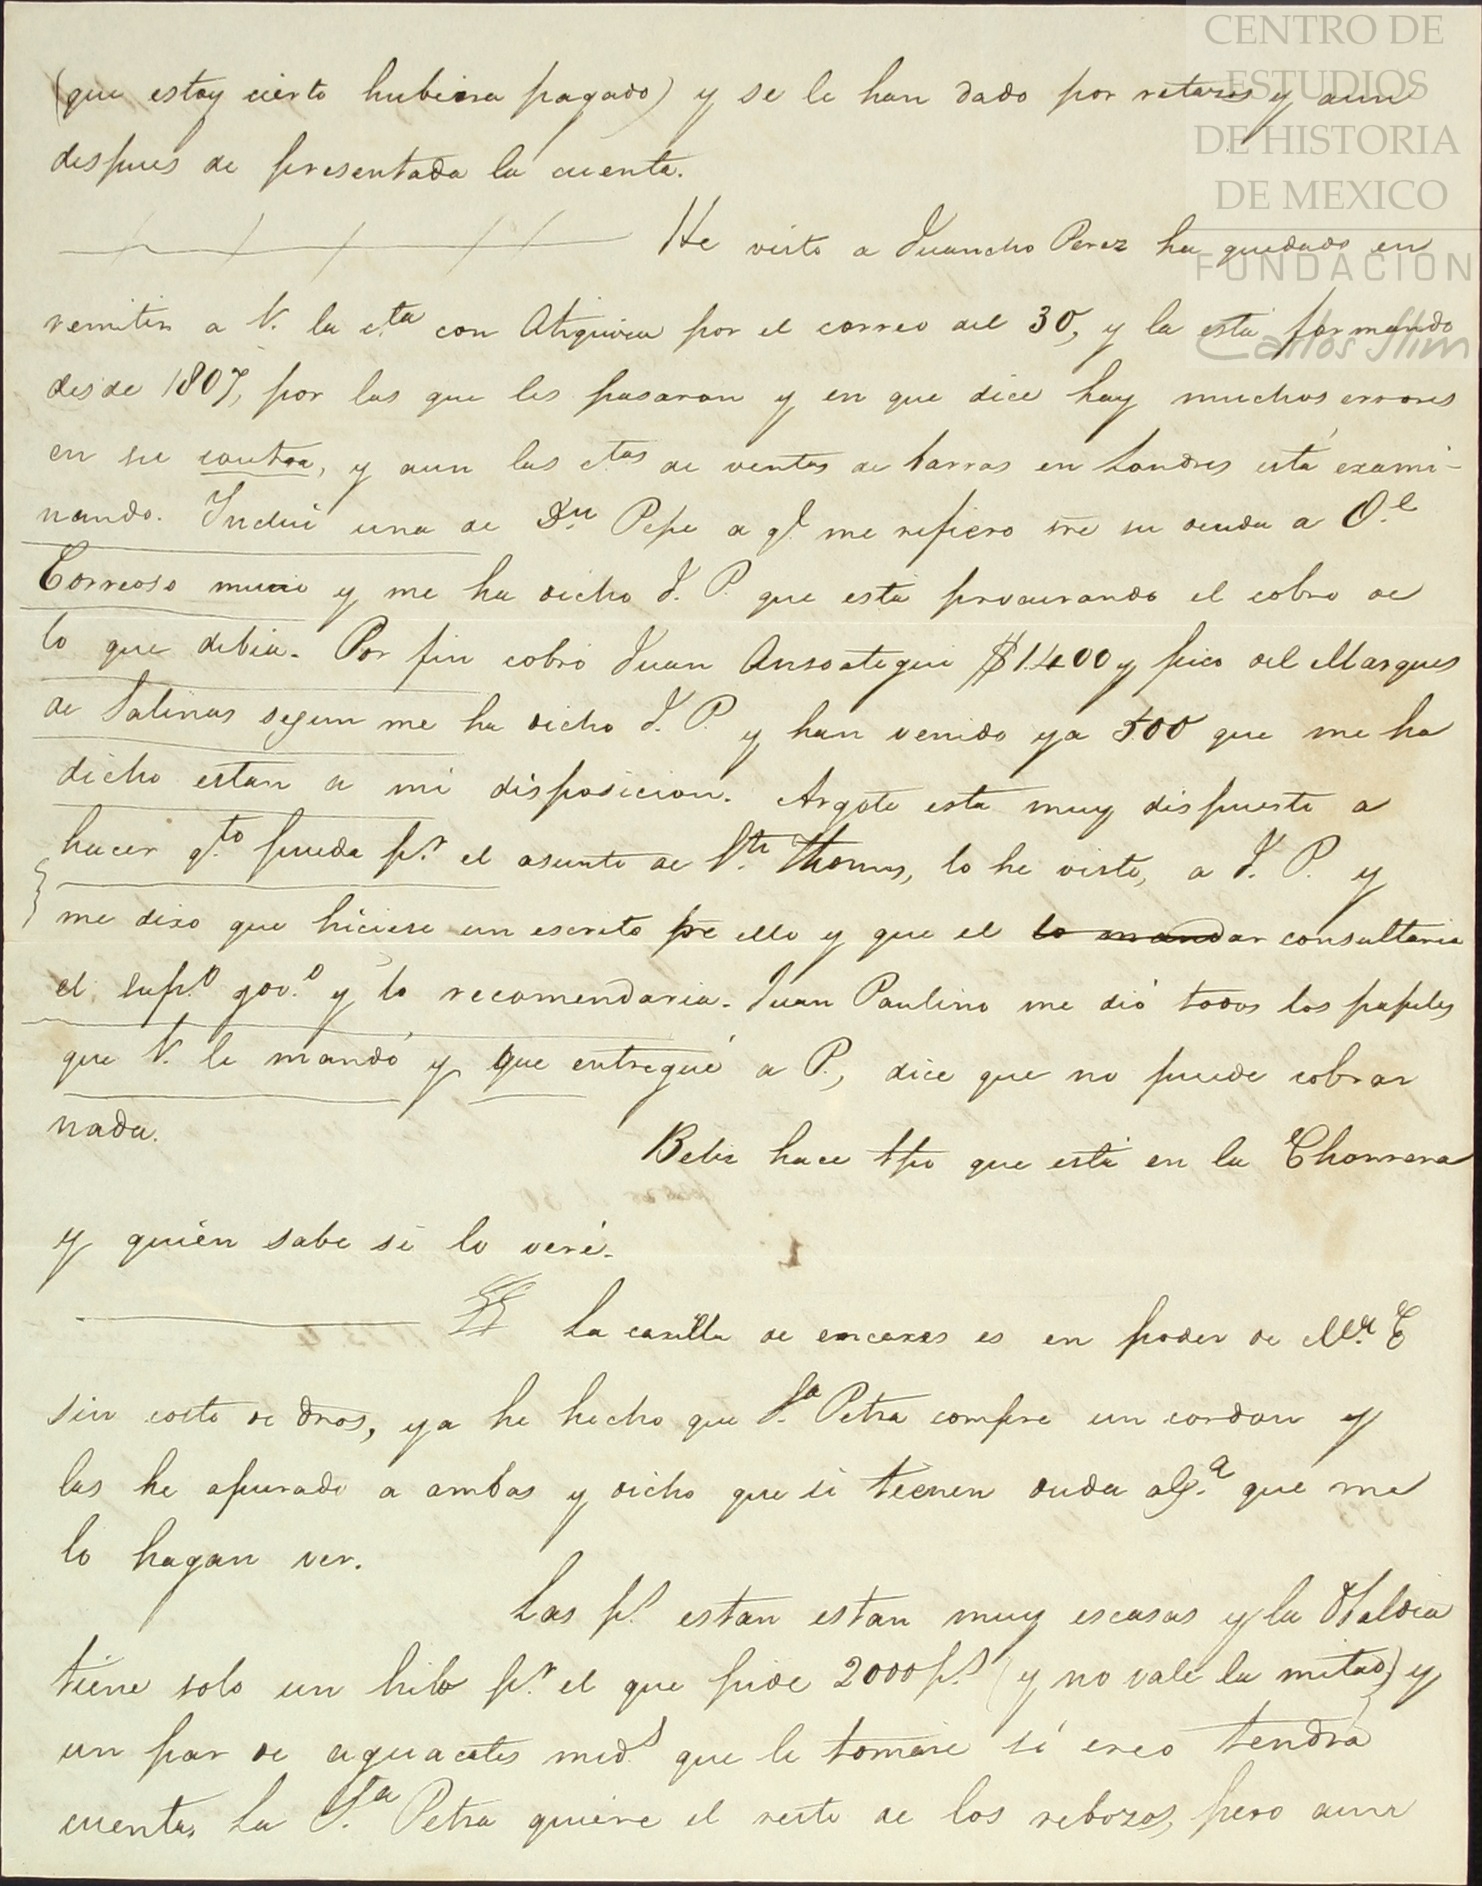 CENTRO DE
ESTUDIOS
DE HISTORIA
DE MEXICO
FUNDACION
Carlos Slim
(que estoy cierto hubiera pagado) y se le han dado por retazos y aun
despues de presentada la cuenta.
He visto a Juancho Perez ha quedado en
remitir a V. la cta con por el correo del 30, y la está formando
desde 1807, por las que les pasaron y en que dice hay muchos errores
en su contra, y aun las ctas de ventas de barras en Londres está exami-
nando. Inclui una de Dn Pepe a qe me refiero sre su deuda a
Correoso murio y me ha dicho J. P. que está procurando el cobro de
lo que debia. Por fin cobró Juan Ansoategui $1400 y pico del Marques
de Salinas segun me ha dicho J. P. y han venido ya 500 que me ha
dicho estan a mi disposicion. Argote está muy dispuesto a
hacer qto pueda pr el asunto de Sto Thomas, lo he visto, a J. P. y
me dixo que hiciese un escrito sre ello y que el lo mandar consultaria
el supo govo y lo recomendaria. Juan Paulino me dió todos los papeles
que V. le mandó y que entregué a P., dice que no puede cobrar
nada.
hace tpo que está en la Chorrera
y quién sabe si lo veré.
La caxilla de encaxes es en poder de
sin costo de dros, ya he hecho que Sa Petra compre un cordon y
las he apurado a ambas y dicho que si tienen duda alga que me
lo hagan ver.
Las ps estan estan muy escasas y la Obaldia
tiene solo un hilo pr el que pide 2000 ps (y no vale la mitad) y
un par de aguacates meds que le tomare si creo tendrá
cuenta. La Sa Petra quiere el resto de los rebozos, pero aun